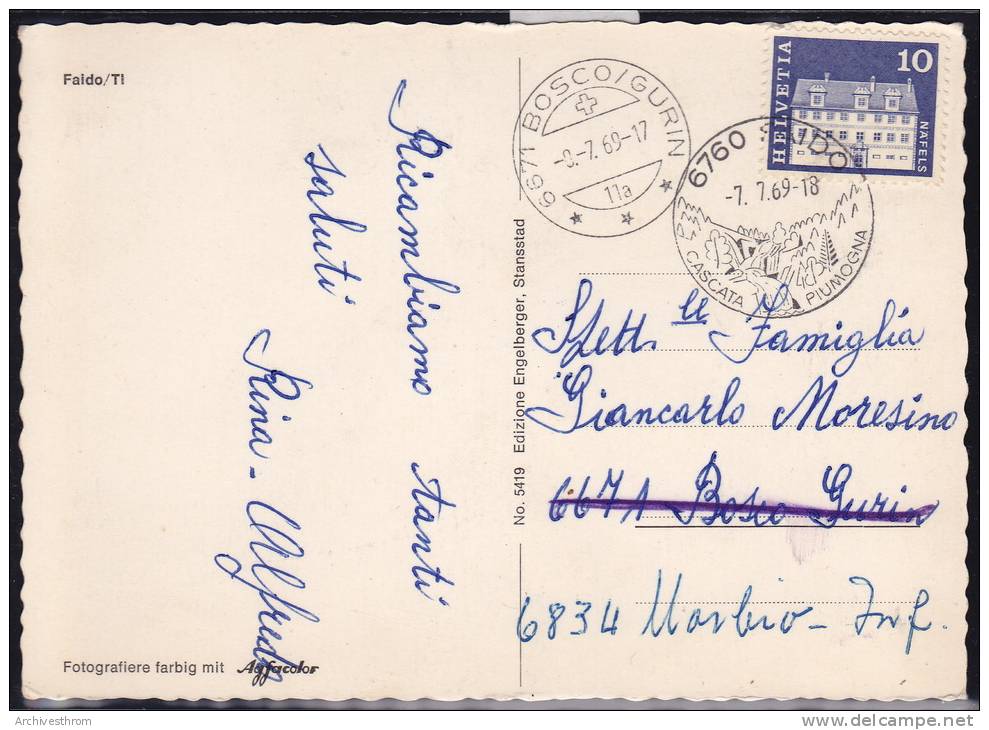 Faido/TI
Ricambiamo tanti
saluti
Rina - Alfredo
Fotografiere farbig mit Agfacolor
No. 5419 Edizione Engelberger, Stansstad
6671 BOSCO/GURIN
-8.-7.69-17
11a
6760 FAIDO
-7. 7.69-18
CASCATA PIUMOGNA
HELVETIA
10
NÄFELS
Spett. le Famiglia
Giancarlo Moresino
6671 Bosco Gurin
6834 Morbio-Inf.
Archivesthrom
www.delcampe.net